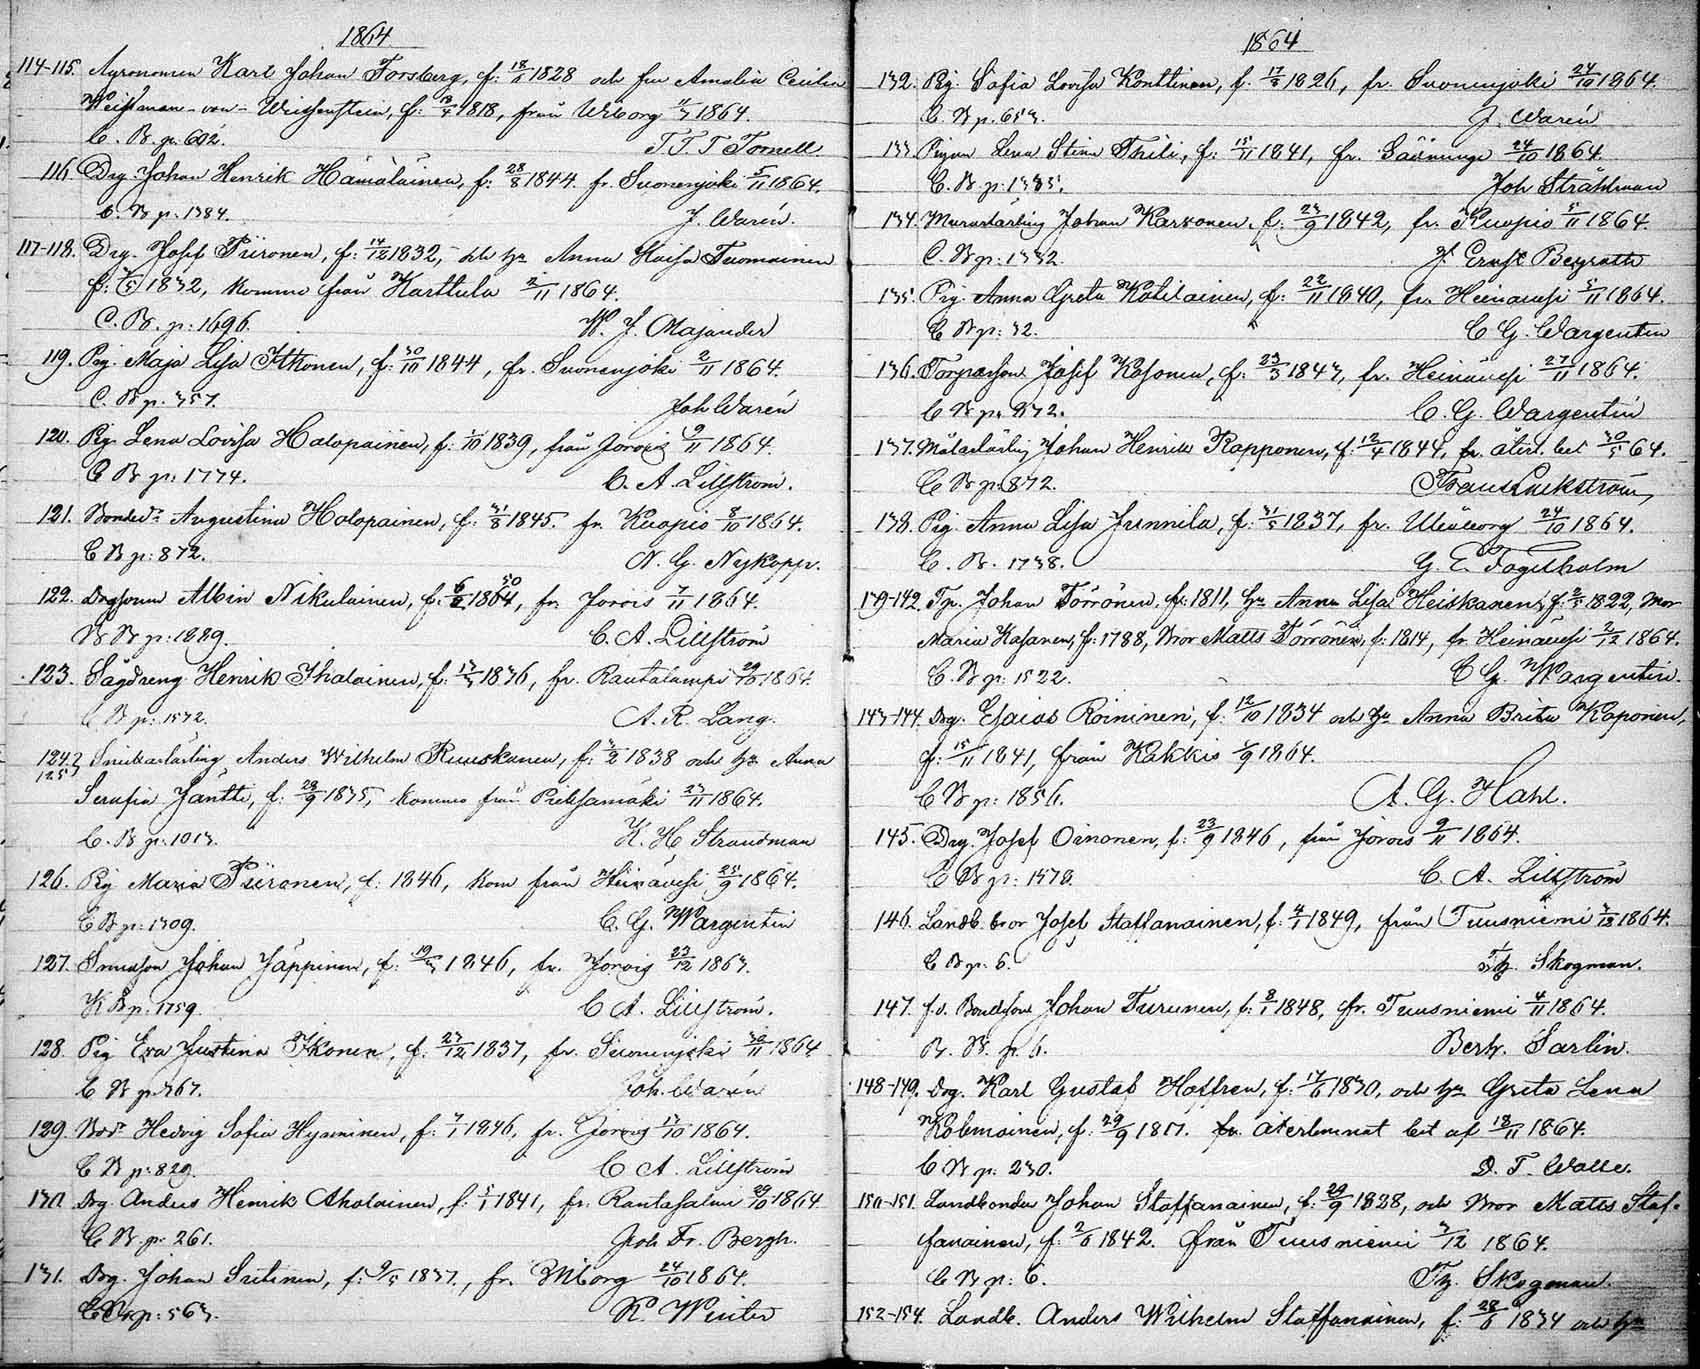 1864
114-115. Agronomen Karl Johan Forsberg, f: 18/6 1828 och fru Amalia Cecilia
von Weissenstein, f: 1818, från Wiborg 1864.
C. B. p. 602. T. T. T. Tornell
116. Drg Johan Henrik Hämäläinen, f: 28/8 1844. fr. Suonenjoki 5/11 1864.
C. B p: 1384. J. Warén.
117-118. Drg. Josef Piironen, f: 14/12 1832, och hu Anna Kaisa Tuomainen
f: 1832, komma från Karttula 2/11 1864.
C. B. p: 1696. W. J. Majander
119. Pig. Maja Lisa Itkonen, f: 30/10 1844, fr. Suonenjoki 2/11 1864.
C. B p. 357. Joh Warén
120. Pig. Lena Lovisa Halopainen, f: 1/10 1839, från Jorois 9/11 1864.
C B p: 1774. C. A. Lillström.
121. Bonded:r Augustina Holopainen, f: 31/8 1845. fr. Kuopio 8/10 1864.
C B p: 872. N. G. Nykopp.
122. Drgsonen Albin Nikulainen, f: 6/2 1864, fr. Jorois 7/11 1864.
B B p: 1889. C. A. Lillström
123. Sågdreng Henrik Ihalainen, f: 1836, fr. Rautalampi 29/10 1864.
C B p: 1532. A. R. Lang.
124 125 Snickarlärling Anders Wilhelm Ruuskanen, f: 3/2 1838 och hu Anna
Serafia Jäntti, f: 29/9 1835, komma från Pieksamäki 23/11 1864.
C. B p: 1013. K. H Strandman
126. Pig Maria Piironen, f: 1846, kom från Heinävesi 25/9 1864.
C B p: 1309. C. G. Wargentin
127. Smedson Johan Jäppinen, f: 19/3 1846, fr. Jorois 23/12 1863.
K B p: 1759. C A. Lillström.
128. Pig Eva Justina Ikonen, f: 23/12 1837, fr. Suonenjoki 30/11 1864
C B p: 367. Joh. Warén
129. Bd:r Hedvig Sofia Hyvninen, f: 7/1 1846, fr. Jorois 13/10 1864.
C B p: 829. C A. Lillström
130. Drg. Anders Henrik Aholainen, f: 5/1 1841, fr. Rantasalmi 29/10 1864
C B. p: 261. Joh Fr. Bergh.
131. Drg. Johan Sutinen, f: 9/5 1837., fr. Wiborg 24/10 1864.
C B p: 563. K. Winter
1864
132. Pig. Sofia Lovisa Konttinen, f. 17/5 1826, fr. Suonenjoki 24/10 1864.
C. B p. 653. J. Warén
133. Pigan Lena Stina Thili, f: 15/11 1841, fr. Säminge 24/10 1864.
C. B. p: 1385. Joh Stråhlman
134. Murarlärling Johan Karvonen, f: 23/9 1842, fr. Kuopio 5/11 1864.
C. B p: 1332. J. Ernst Beyrath
135. Pig. Anna Greta Kotilainen, f: 22/11 1840, fr. Heinävesi 5/11 1864.
C B p: 32. C G. Wargentin
136. Torparson Josef Kosonen, f: 23/3 1843, fr. Heinävesi 27/11 1864.
C B p. 872. C. G. Wargentin
137. Målarlärling Johan Henrik Rapponen, f: 12/4 1844, fr. återl. bet 30/5 64.
C B p. 872.
138. Pig Anna Lisa Junnila, f: 31/5 1837, fr. Uleåborg 24/10 1864.
C. B. 1738. G. E. Fagerholm
139-142. Tp. Johan Törrönen, f: 1811, hu Anna Lisa Heiskanen, f: 2/5 1822, Mor
Maria Kosonen, f: 1788, Bror Matts Törrönen, f: 1814, fr. Heinävesi 2/12 1864.
C B p: 1522. C G. Wargentin.
143-144. Drg. Esaias Roininen, f: 12/10 1834 och hu Anna Brita Kaponen,
f: 15/11 1841, från Kakkis 1/9 1864.
C B p: 1856. A. G. Hahl.
145. Drg. Josef Oinonen, f: 23/9 1846, från Jorois 9/11 1864.
C B p: 1578. C. A. Lillström
146. Landb. bror Josef Staffanainen, f: 4/1 1849, från Tuusniemi 3/12 1864.
C B p. 6. Th. Skogman.
147. f.d. Bondeson Johan Turunen, f: 8/1 1848, fr. Tuusniemi 4/11 1864.
B. B. p. 6. Berh. Sarlin.
148-149. Drg. Karl Gustaf Hoffren, f: 17/6 1830, och hu Greta Lena
Kolmainen, f: 29/9 1817. fr. återlemnat bet af 18/11 1864.
C B p: 230. D. T. Walle.
150-151. Landbonden Johan Staffanainen, f: 29/9 1828, och Bror Matts Staf-
fanainen, f: 2/6 1842. från Tuusniemi 3/12 1864.
C B p: 6. Th. Skogman.
152-154. Landb. Anders Wilhelm Staffanainen, f: 28/6 1834 och hu